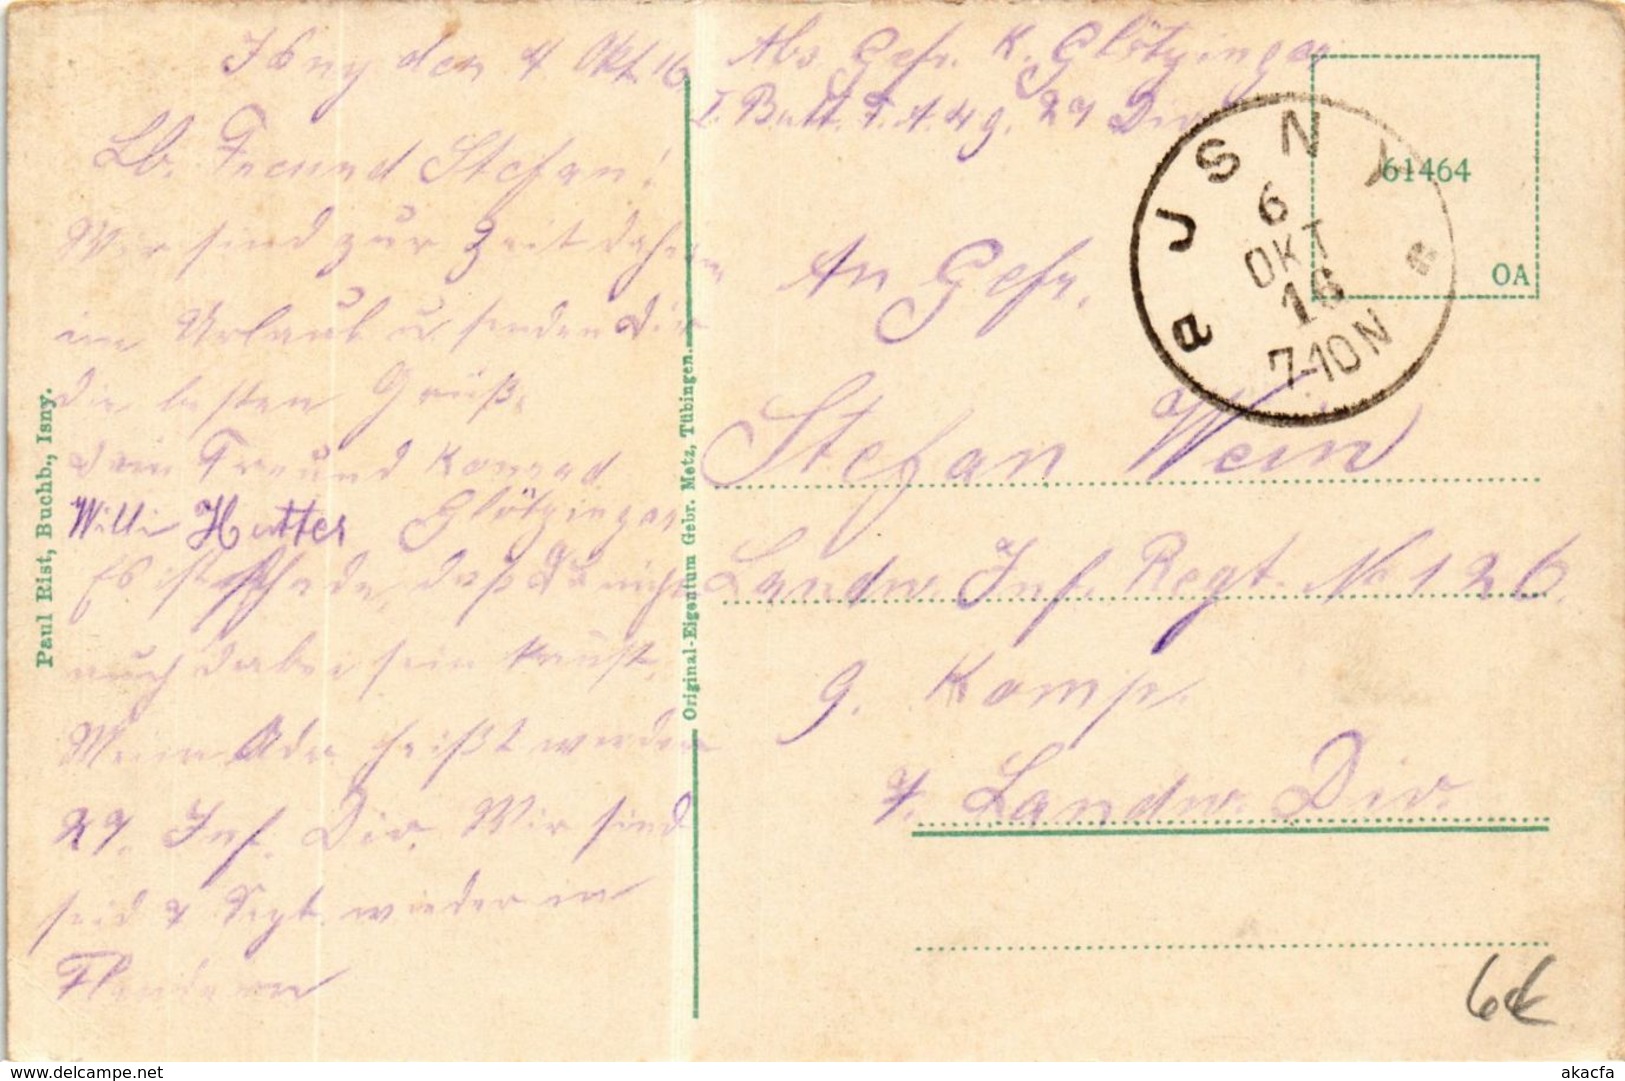 Isny den 4 Okt. 16
Lb. Freund Stefan!
Wir sind zur Zeit daheim
im Urlaub u senden Dir
die besten Grüße.
Dein Freund Konrad
Willi Hutter Glötzinger
Es ist schade, daß Du nicht
auch dabei sein kannst.
Mein Adr. heißt
27. Inf. Div. Wir sind
seid 7 Sept. wieder in
Flandern
Paul Rist, Buchb., Isny.
Original-Eigentum Gebr. Metz, Tübingen.
Abs. Gefr. K. Glötzinger
I. Batt. F. A. 49. 27 Div.
JSNY
6
OKT
16
7-10N
61464
OA
An Gefr.
Stefan Wein
Landw. Inf. Regt. No 126.
9. Komp.
7. Landw. Div.
6€
akacfa
www.delcampe.net